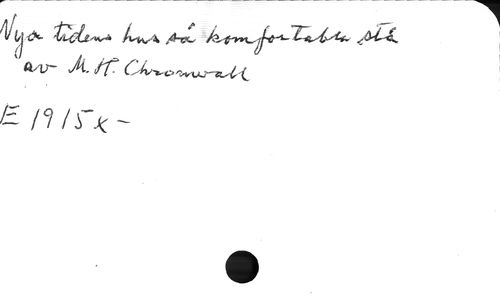 Nya tidens hus så komfortabla stå
av M. H. Chronwall
E 1915 x -